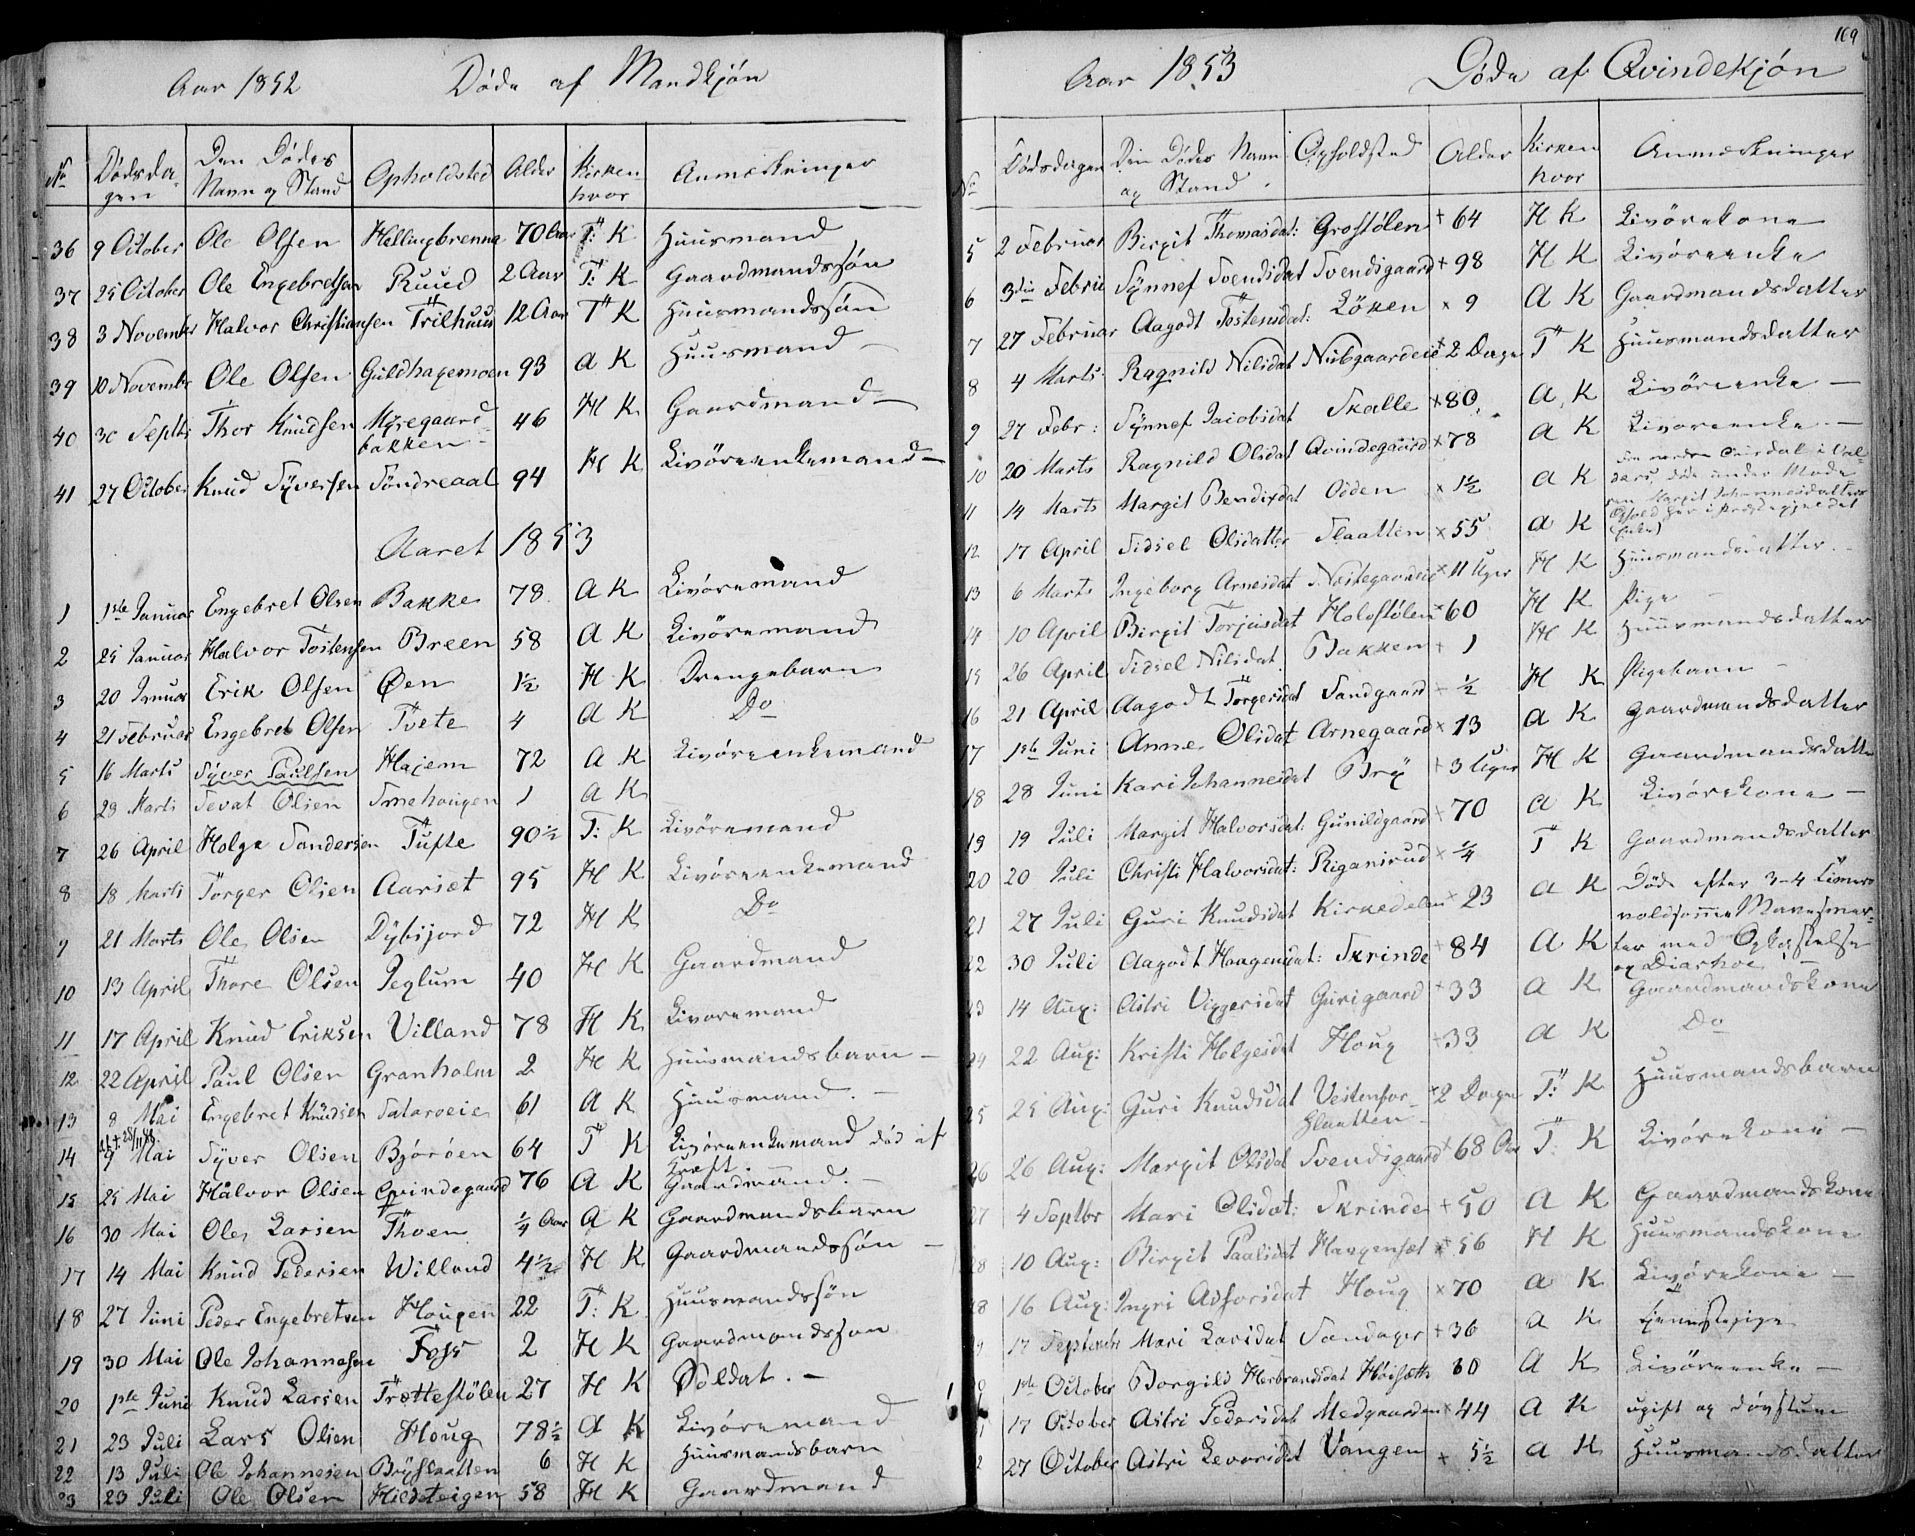 169
Aar 1852 Døde af Mandkjön
No Dødsdagen Den Dødes Navn og Stand Opholdsted Alder Kirken hvor Anmærkninger
36 9 October Ole Olsen Hellingbrenna 70 Aar T: K Huusmand
37 25 October Ole Engebretsen Ruud 2 Aar T: K Gaardmandssøn
38 3 November Halvor Christiansen Trilhuus 12 Aar T K Huusmandssøn
39 10 Novembr Ole Olsen Guldhagemoen 93 A K Huusmand –
40 30 Septbr Thor Knudsen Myregaard- 46 H K Gaardmand –
bakken –
41 27 October Knud Syversen Söndreaal 94 H K Livöreenkemand –
Aaret 1853
1 1ste Januar Engebret Olsen Bakke 78 A K Livöremand
2 25 Januar Halvor Tostensen Breen 58 A K Livöremand
3 20 Januar Erik Olsen Øen 1½ H K Drengebarn
4 21 Februar Engebret Olsen Tvete 4 A K Do
5 16 Marts Syver Paulsen Hajem 72 A K Livöreenkemand
6 28 Marts Sevat Olsen Smehougen 1 A K
7 26 April Holge Sandersen Tufte 90½ T: K Livöremand
8 18 Marts Torger Olsen Aarset 95 H K Livöreenkemand
9 21 Marts Ole Olsen Dybsjord 72 H K Do
10 13 April Thore Olsen Peglum 40 H K Gaardmand
11 17 April Knud Eriksen Villand 78 H K Livoremand
12 22 April Paul Olsen Granholm 2 H K Huusmandsbarn –
13 8 Mai Engebret Knudsen Sataroeie 61 A K Huusmand. –
14 9 Mai Syver Olsen Bjøröen 64 T K Livöreenkemand död af
Kræft
15 25 Mai Halvor Olsen Qvindegaard 76 A K Gaardmand. –
16 30 Mai Ole Larsen Thoen ¼ Aar A K Gaardmandsbarn
17 14 Mai Knud Pedersen Willand 4½ H K Gaardmandssön –
18 27 Juni Peder Engebretsen Hougen 22 T: K Huusmandssön
19 30 Mai Ole Johannesen Foss 2 H K Gaardmandsson
20 1ste Juni Knud Larsen Trættestölen 27 H K Soldat. –
21 23 Juli Lars Olsen Houg 78½ A K Livöremand
22 13 Juli Ole Johannesen Bryslaatten 6 H K Huusmandsbarn
23 23 Juli Ole Olsen Hildeteigen 58 H K Gaardmand
Aar 1853 Døde af Qvindekjön
No Dødsdagen Den Dødes Navn og Stand. Opholdsted Alder Kirken hvor Anmærkninger
5 2 Februar Birgit Thomasdat: Grostølen + 64 H K Livörekone
6 3die Februar Synnef Svendsdat Svendsgaard + 98 H K Livöreenke
7 27 Februar Aagodt Tostensdat: Löken × 9 A K Gaardmandsdatter
8 4 Marts Ragnild Nilsdat Nubgaardeie + 2 Dage T K Huusmandsdatter
9 27 Febr: Synnef Jacobsdat Skalle × 80 A K Livöreenke –
10 20 Marts Ragnild Olsdat Qvindegaard × 78 A K Livöreenke –
11 14 Marts Margit Bendixdat Odden × 1½ A K
12 17 April Sidsel Olsdatter Slaatten × 55 A K
13 6 Marts Ingeborg Arnesdat Næstegaardeie × 11 Uger H K Huusmandsdatter. –
14 10 April Birgit Torjusdat Holostölen × 60 H K Pige –
15 26 April Sidsel Nilsdat Bakken + 1 H K Huusmandsdatter
16 21 April Aagodt Torgersdat Sandgaard + ½ H K Pigebarn –
17 1ste Juni Anne Olsdat Arnegaard × 13 A K Gaardmandsdatter
18 28 Juni Kari Johannesdat Bry + 3 Uger H K Gaardmandsdatter
19 19 Juli Margit Halvorsdat: Gunildgaard + 70 A K Livörekone –
20 20 Juli Christi Halvorsdat: Riganirud × ¼ T K Gaardmandsdatter
21 27 Juli Guri Knudsdat Kirkedelen × 23 A K Død efter 3-4 Timers
voldsomme Mavesmer-
22 30 Juli Aagodt Haagensdat: Skrinde + 84 A K ter med Opkastelse
og Diarhoe. –
23 14 Aug: Astri Viggersdat Gurigaard + 33 A K Gaardmandskone
24 22 Aug: Kristi Helgesdat Houg + 33 A K Do
25 25 Aug: Guri Knudsdat Vestenfor- + 2 Dage T: K Huusmandsbarn
Slaatten –
26 26 Aug: Margit Olsdat Svendsgaard + 68 Aar T: K Livörekone –
27 4 Septbr Mari Olsdat: Skrinde + 50 A K Gaardmandskone
28 10 Aug: Birgit Paalsdat Haugenset × 56 H K Huusmandskone
28 16 Aug: Ingri Asforsdat Houg × 70 A K Livörekone –
17 Septembr Mari Larsdat Sandager + 36 A K Tjenestepige
1ste October Borgild Herbrandsdat Höisæth 80 A K Livöreenke –
17 October Astri Pedersdat Medgaarden × 44 A K ugift og dövstum
27 October Astri Levorsdat Vangen + 5½ A K Huusmandsdatter